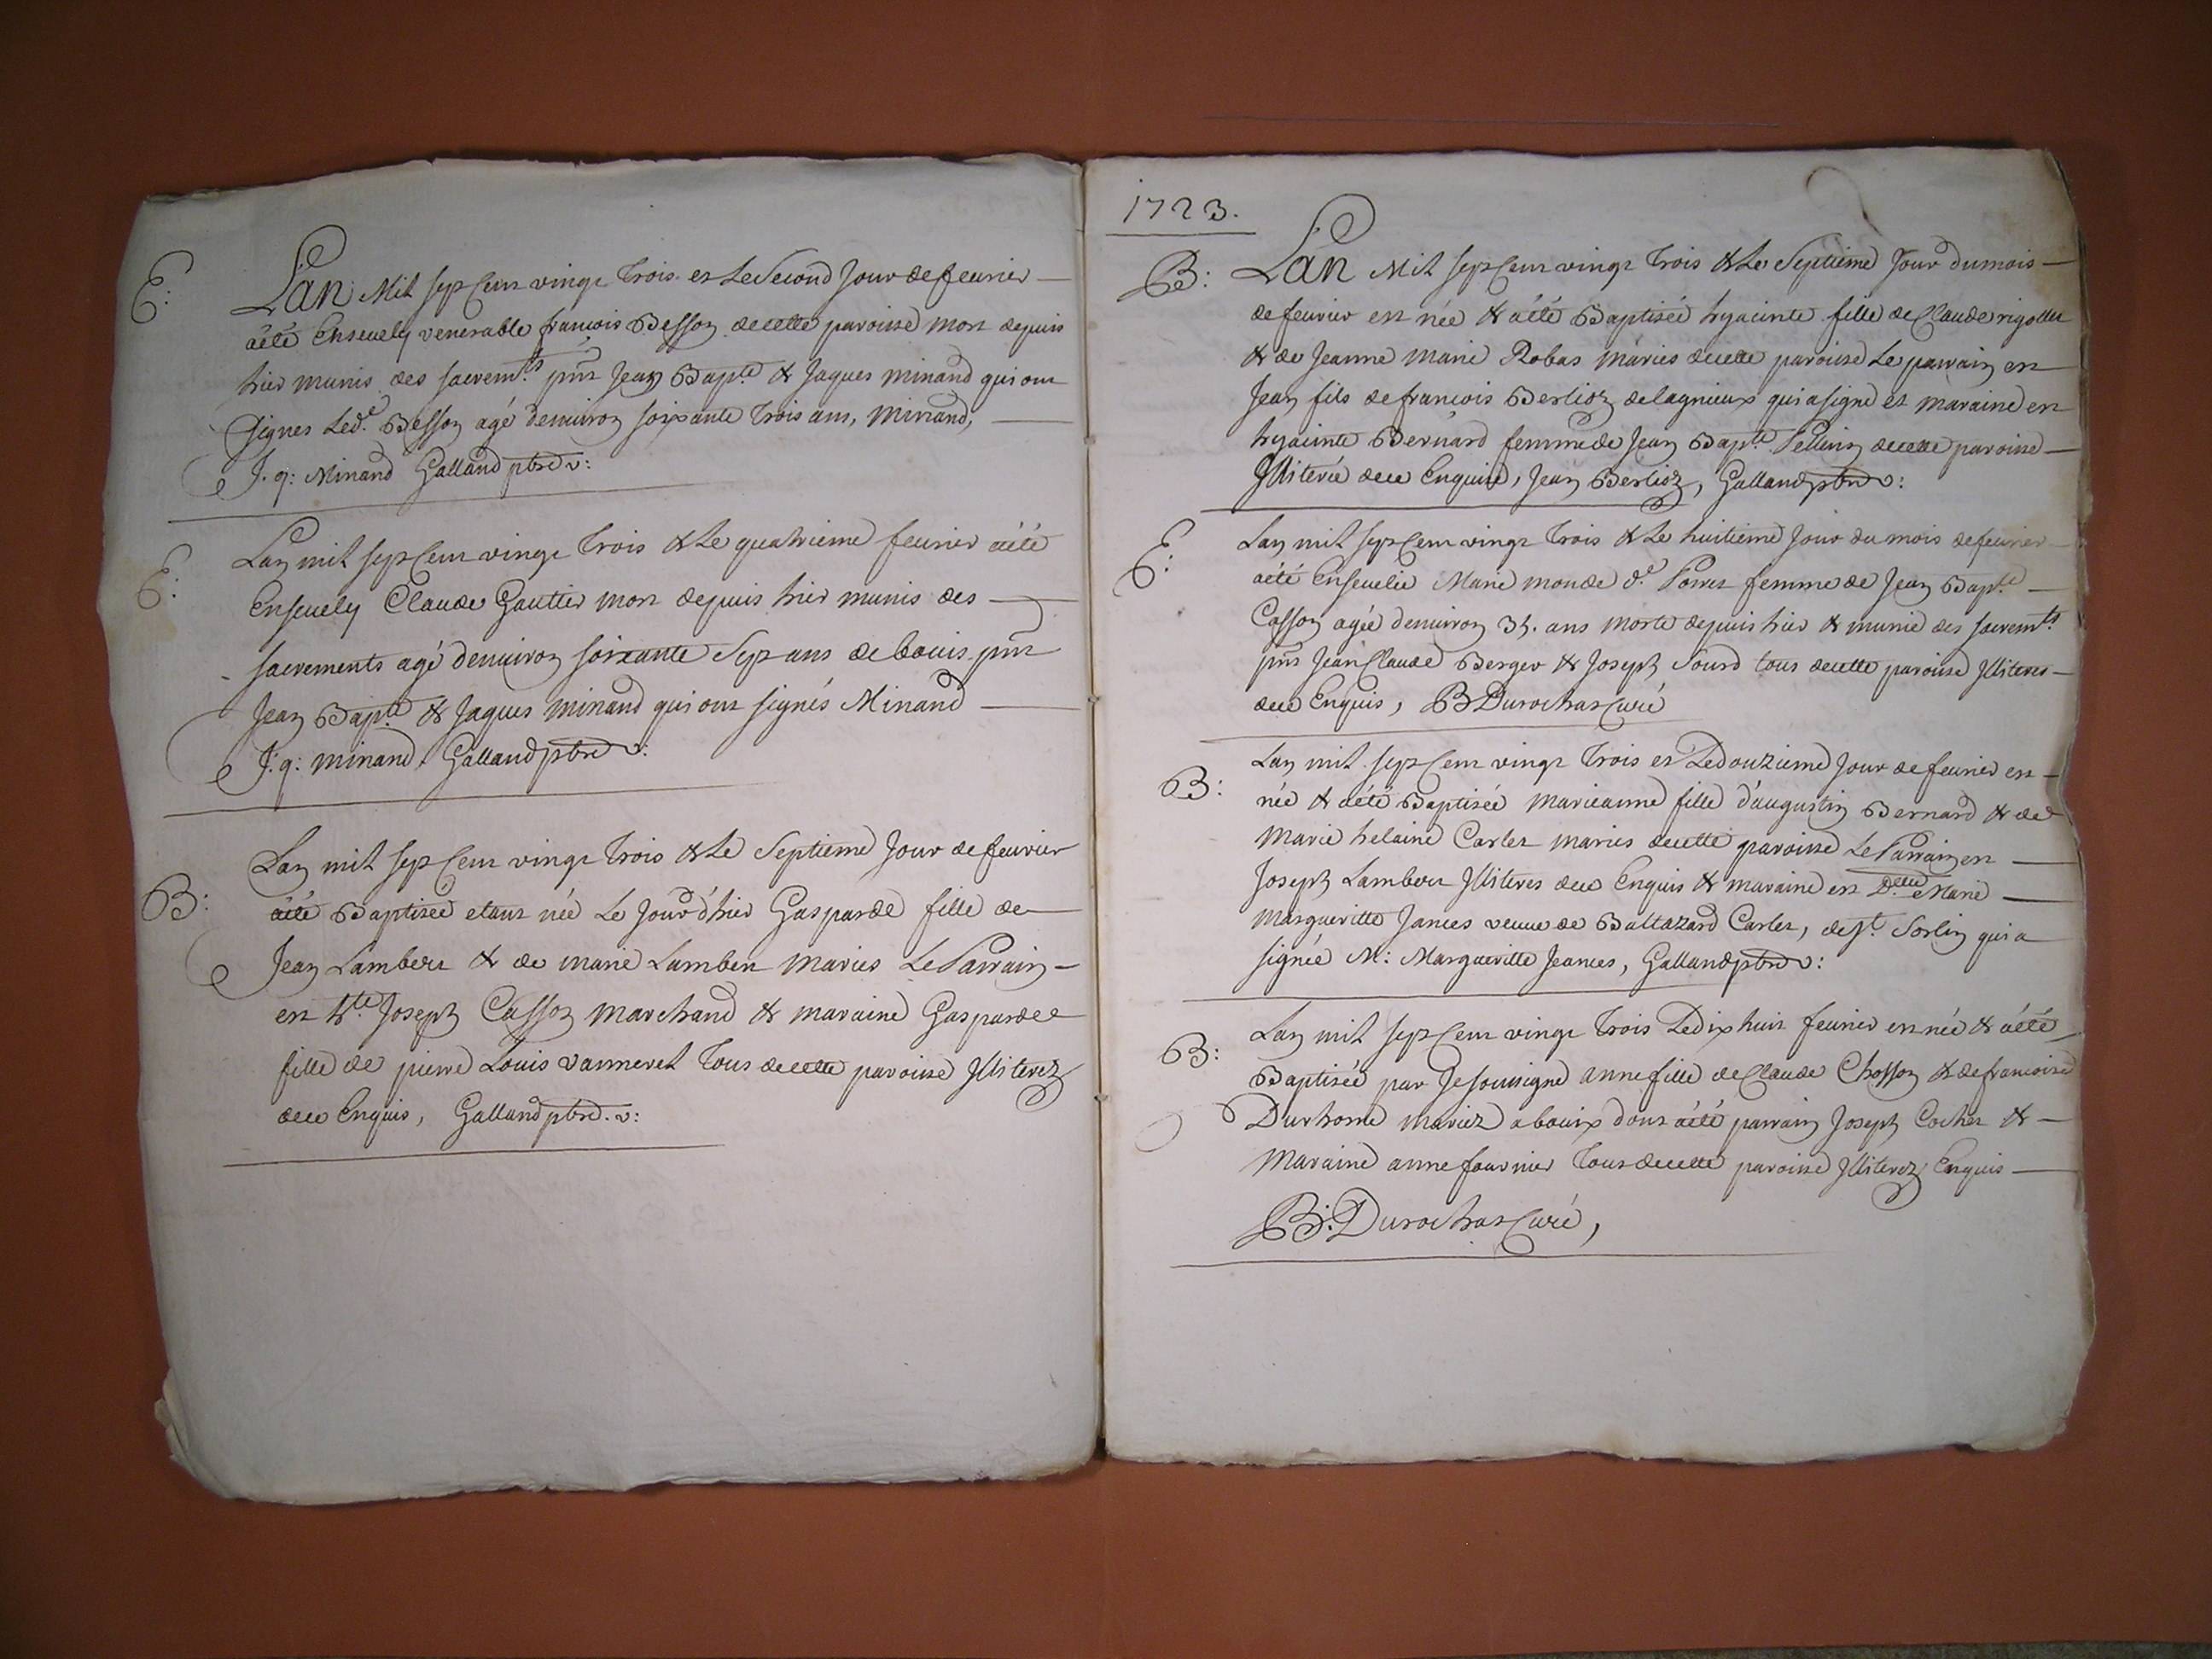 E:
Lan Mil sept Cent vingt trois et Le Second Jour de feurier
a été Enseuely venerable francois Besson de cette paroisse mort depuis
hier munis des sacrem.ts pnt Jean Bap.te & Jaques minand qui ont
signes Led.t Besson agé denuiron soixante trois ans, Minand,
J. q: Minand Galland ptre v:
E:
Lan mil sept Cent vingt trois & Le quatrieme feurier a été
Enseuely Claude Gautier mort depuis hier munis des
sacrements agé denuiron soixante Sept ans de bouis pnt
Jean Bap.te & Jaques minand qui ont signés Minand
J. q: minand, Galland ptre v:
B:
Lan mil sept Cent vingt trois & Le Septieme Jour de feuvrier
a été Baptisée etant née Le Jour d'hier Gasparde fille de
Jean Lambert & de marie Lambert maries Le Parrain
est h.te Joseph Casson marchand & maraine Gasparde
fille de pierre Louis vanneret tous de cette paroisse Jlliterez
de ce Enquis, Galland ptre. v:
1723.
B:
Lan Mil sept Cent vingt trois & Le Septieme Jour du mois
de feuvrier est née & a été Baptisée hyacinte fille de Claude rigollet
& de Jeanne marie Robas maries de cette paroisse Le parrain est
Jean fils de francois Berlioz de lagnieux qui a signé et maraine est
hyacinte Bernard femme de Jean Bap.te Pellerin de cette paroisse
Jlliterée de ce Enquise, Jean Berlioz, Galland ptre v:
E:
Lan mil sept Cent vingt trois & Le huitieme Jour du mois de feurier
a été Enseuelie Marie monde d.e femme de Jean Bap.te
Casson agée denuiron 35. ans morte depuis hier & munie des sacrem.ts
pnts Jean Claude Berger & Joseph Sourd tous de cette paroisse Jlliteres
de ce Enquis, B Durochas Curé
B:
Lan mil sept Cent vingt trois et Le douzieme Jour de feurier est
née & a été Baptisée marieanne fille d'augustin Bernard & de
Marie helaine Carlet maries de cette paroisse Le Parrain est
Joseph Lambert Jlliteres de ce Enquis & maraine est D.elle Marie
Margueritte Janies veuue de Baltazard Carlet, de s.t Sorlin qui a
signée M: Margueritte Jeanies, Galland ptre v:
B:
Lan mil sept Cent vingt trois Le dix huit feurier est née & a été
Baptisée par Je soussigne anne fille de Claude Chosson & de francoise
Durhone mariez a bouix dont a été parrain Joseph Cochet &
Maraine anne fournier tous de cette paroisse Jlliterez Enquis
B: Durochas Curé,